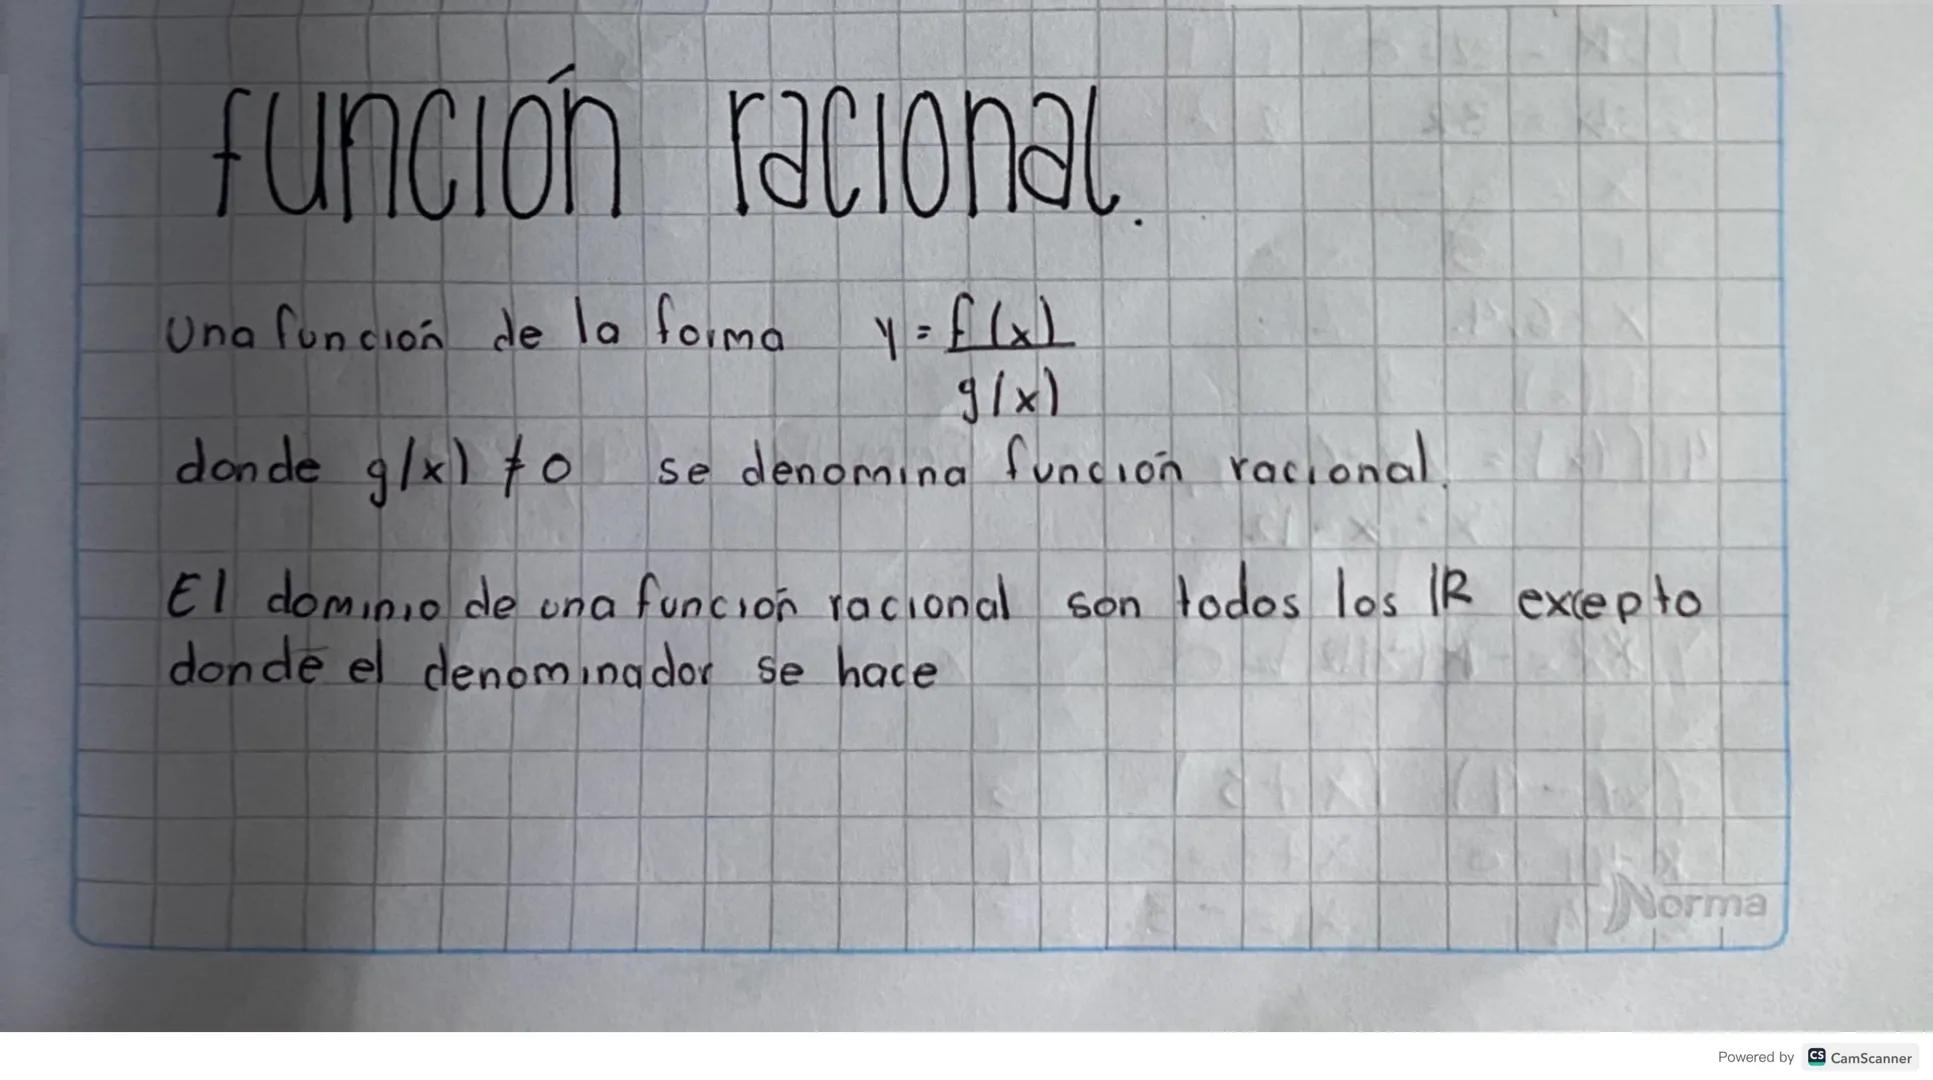 función racional.
Una función de la forma y = f(x)
g(x)
donde g(x) ≠ 0 se denomina función racional.
El dominio de una función racional son todos los ℝ excepto
donde el denominador se hace
Norma
Powered by CS CamScanner